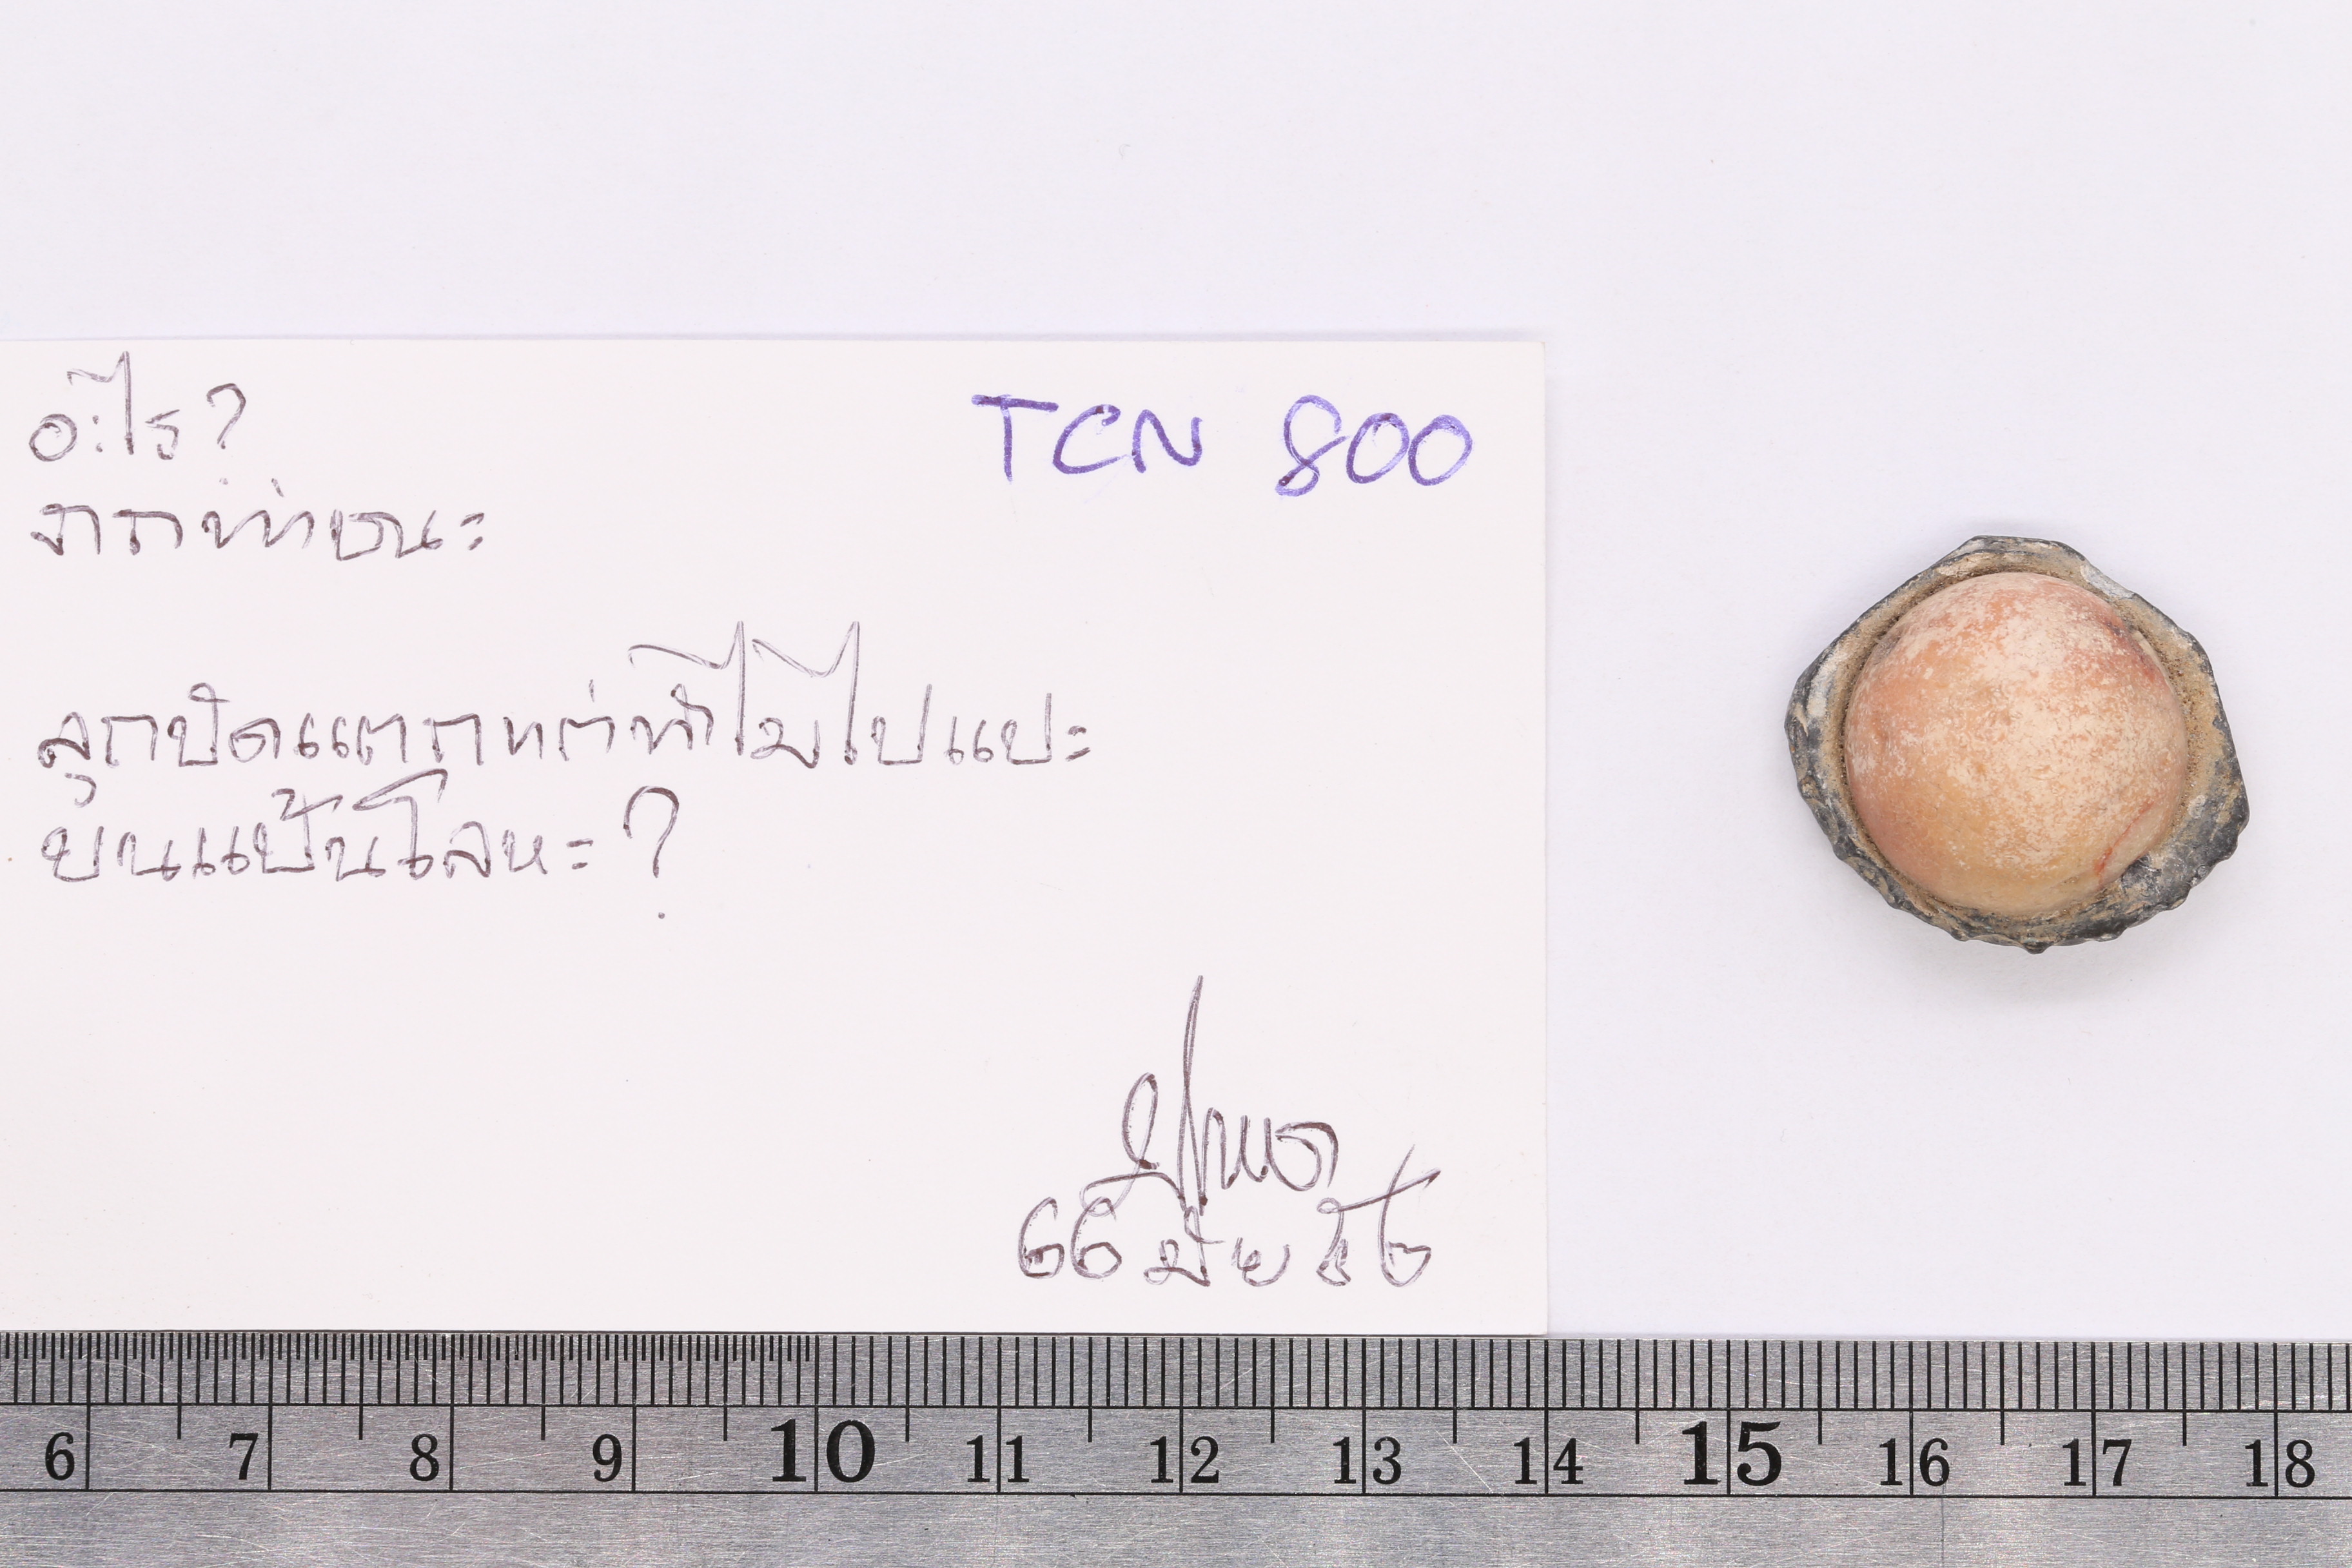 อะไร?
TCN 800
จากท่าชนะ
ลูกปัดแตกแต่ทำไมไปแปะ
บนแป้นโลหะ?
๑๑ มิย ๕๒
6 7 8 9 10 11 12 13 14 15 16 17 18